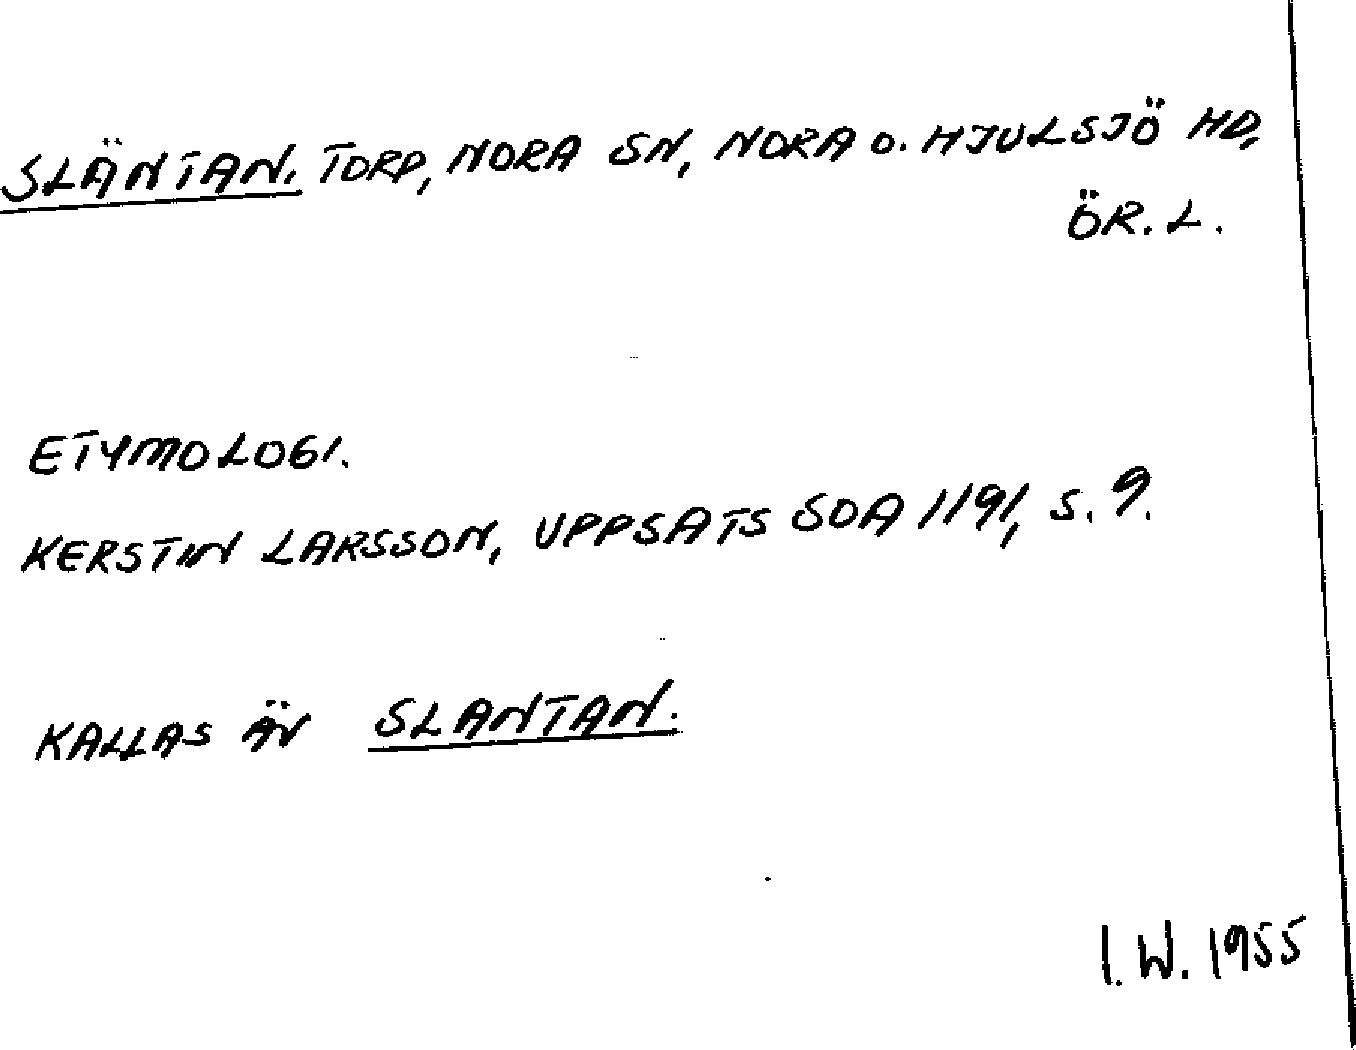 SLÄNTAN. TORP, NORA SN, NORA O. HJULSJÖ HD,
ÖR. L.
ETYMOLOGI.
KERSTIN LARSSON, UPPSATS SOA 1191, S. 9.
KALLAS ÄV SLANTAN.
I. W. 1955